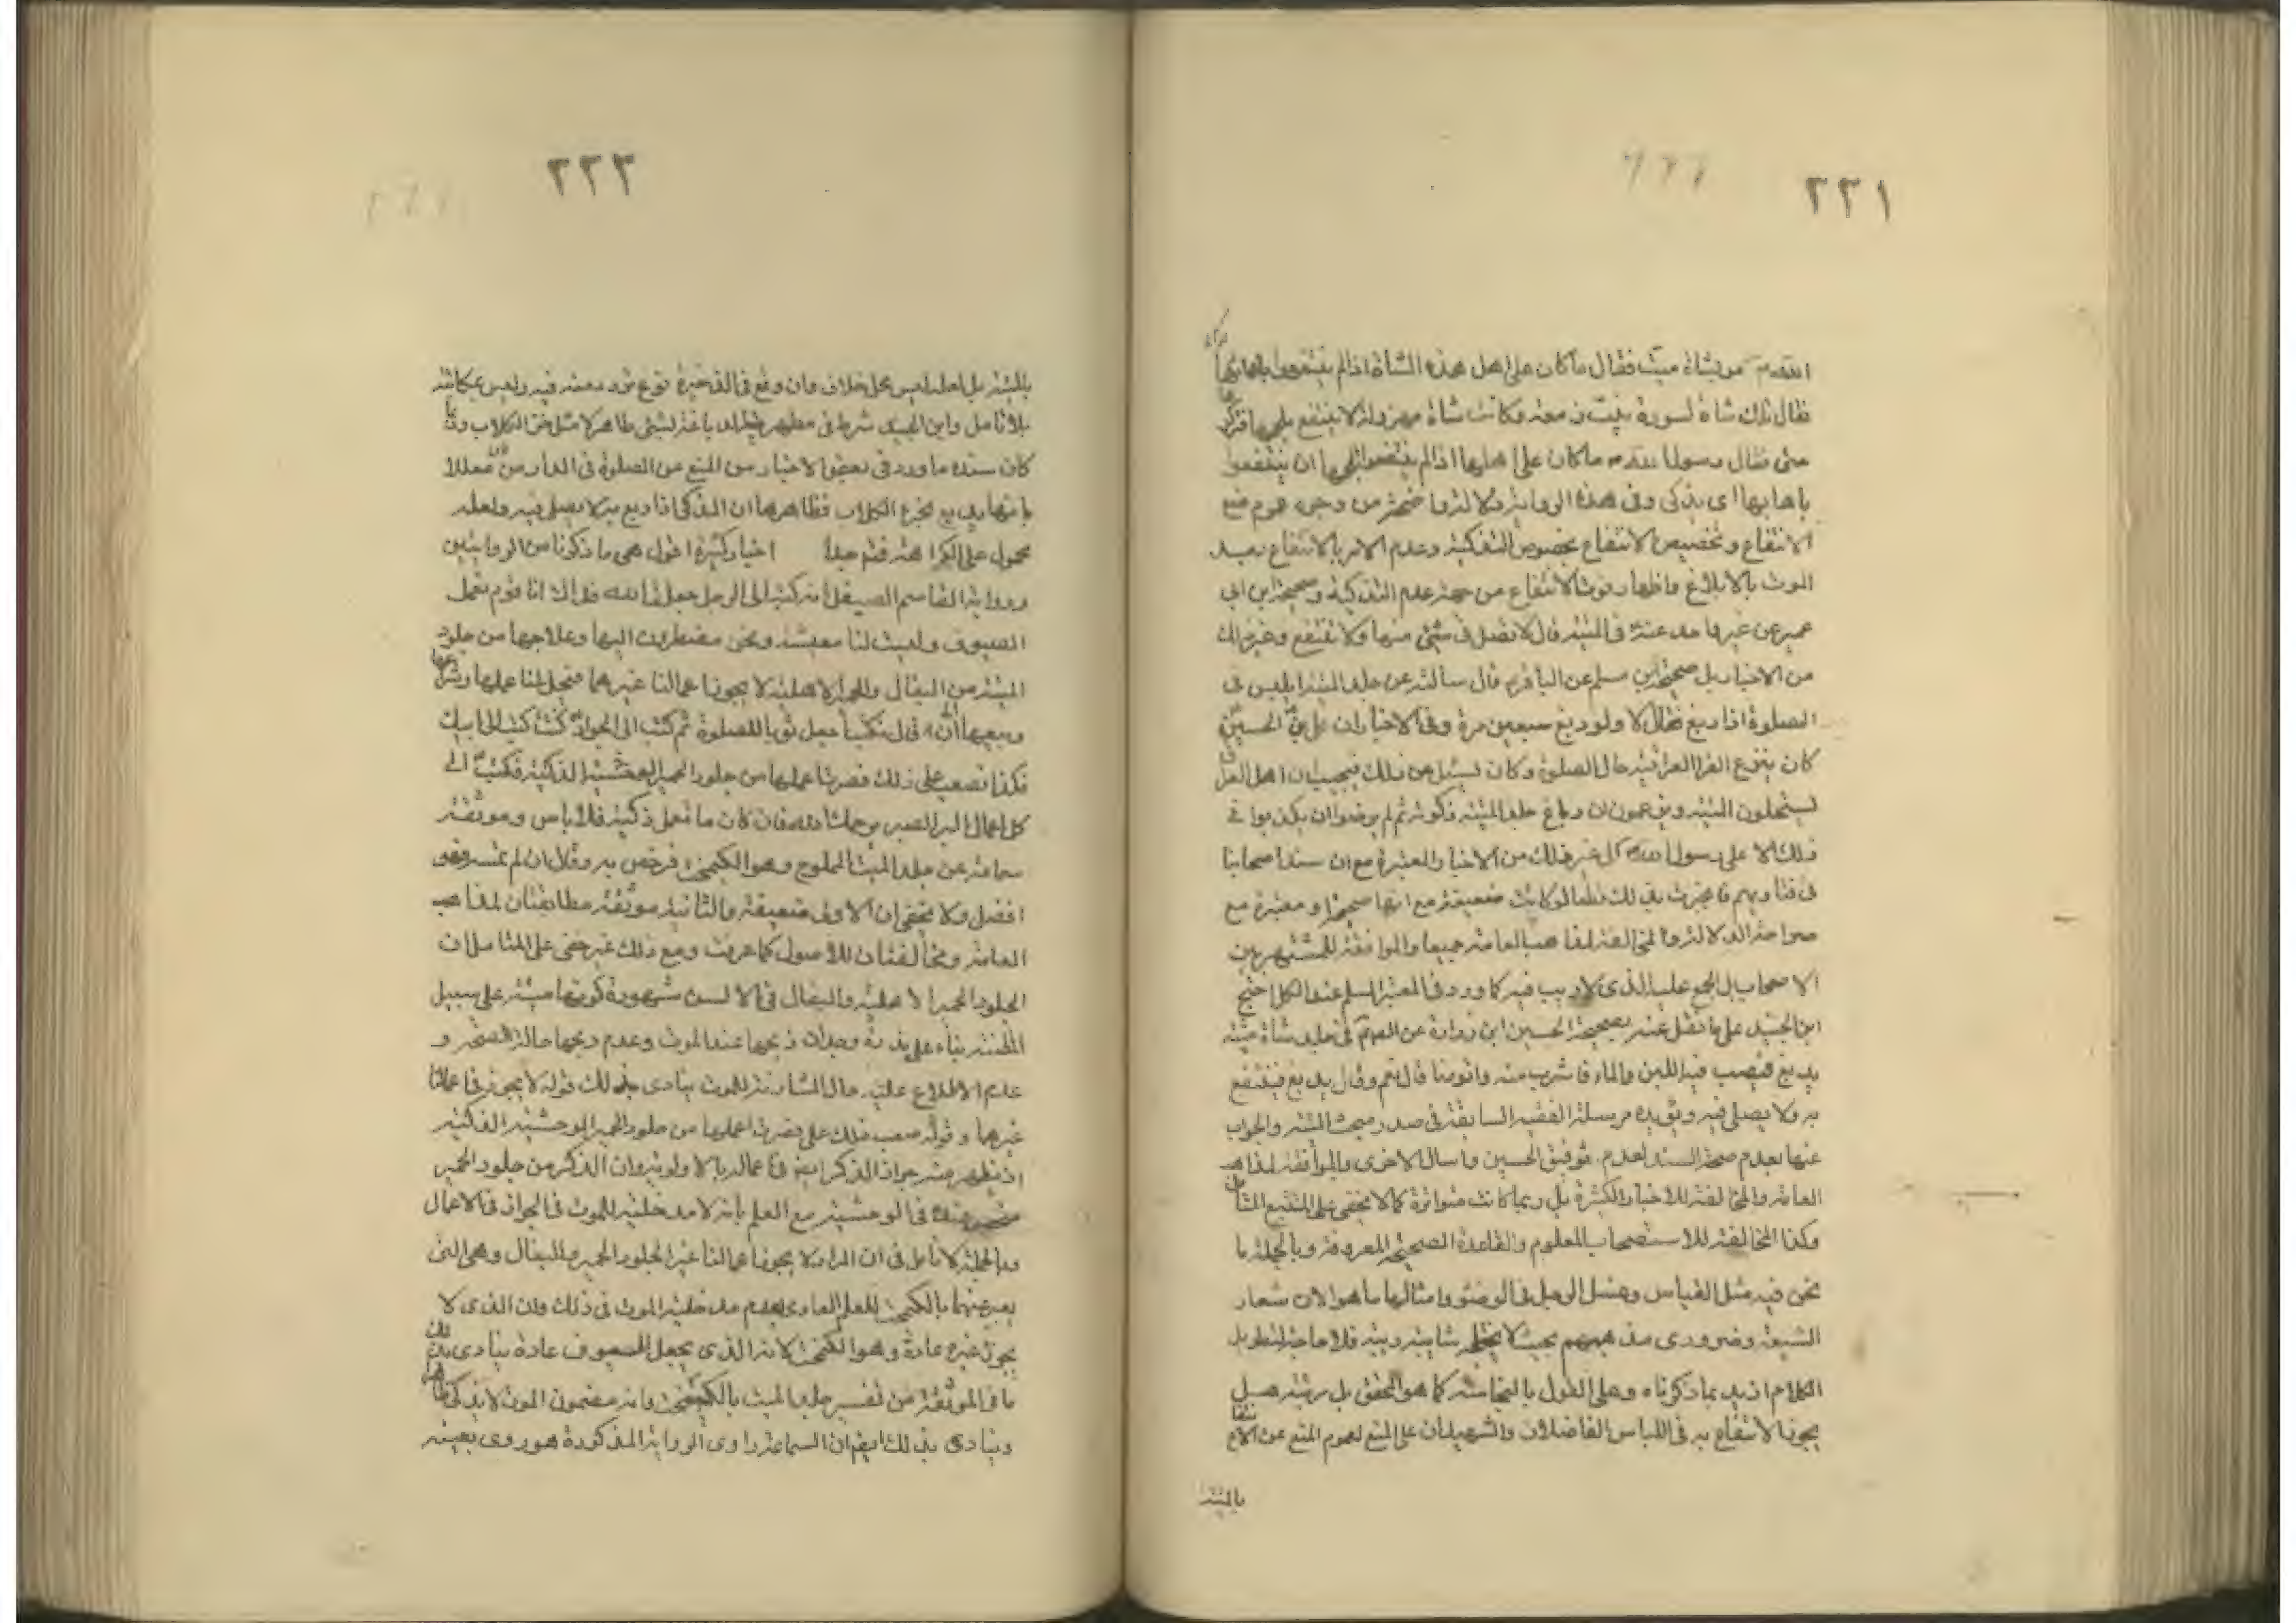 ٢٢١
الله ص مر بشاة ميت فقال ما كان على اهل هذه الشاة اذا لم ينتفعوا باهابها
فقال تلك شاة لسورة بنت زمعه وكانت شاة مهزولة لا ينتفع بلحمها فتركوها
حتى فقال رسول الله ص ما كان على اهلها اذا لم ينتفعوا بلحمها ان ينتفعوا
باهابها اى بذكى وفى هذه الرواية دلالة واضحة من وجوه عموم منع
الانتفاع وتخصيص الانتفاع بخصوص التذكية وعدم الامر بالانتفاع بعد
الموت بالابلاغ واظهار فوت الانتفاع من جهة عدم التذكية وصحيحة ابن ابى
عمير عن غير واحد عنه فى الميتة قال لا تصل فى شئ منها ولا تنتفع وغير ذلك
من الاخبار بل صحيحة ابن مسلم عن الباقر قال سالته عن جلد الميتة ايلبس فى
الصلوة اذا دبغ فقال لا ولو دبغ سبعين مرة وفى الاخبار ان على بن الحسين
كان ينزع الفرا العراقية حال الصلوة وكان يسئل عن ذلك فيجيب ان اهل العراق
يستحلون الميتة ويزعمون ان دباغ جلد الميتة ذكوته ثم لم يرضوا ان يكذبوا فى
ذلك الا على رسول الله ص كل غير ذلك من الاخبار المعتبرة مع ان سند اصحابنا
فى فتاويهم فانجبرت بذلك قطعا لو كانت ضعيفة مع انها صحيحة او معتبرة مع
صراحة الدلالة والمخالفة لمذاهب العامة جميعا والموافقة للمشتهر بين
الاصحاب بل المجمع عليه الذى لا ريب فيه كما ورد فى المعتبر المسلم عند الكل احتج
ابن الجنيد على ما نقل عنه بصحيحة الحسين ابن زرارة عن الصم فى جلد شاة ميتة
يدبغ فيصب فيه اللبن والماء فاشرب منه واتوضا قال نعم وقال يدبغ فينتفع
به ولا يصلى فيه ويؤيده مرسلة الفقيه السابقة فى صدر مبحث الميتة والجواب
عنها بعدم صحة السند لعدم توثيق الحسين وارسال الاخرى والموافقة لمذاهب
العامة والمخالفة للاخبار الكثيرة بل ربما كانت متواترة كما لا يخفى على المتتبع المتامل
وكذا المخالفة للاستصحاب المعلوم والقاعدة الصحيحة المعروفة وبالجملة ما
نحن فيه مثل القياس وغسل الرجل فى الوضوء وامثالها ما هو الان شعار
الشيعة وضرورى مذهبهم بحيث لا يختلجه شائبة وريبة فلا حاجة لتطويل
الكلام ازيد بما ذكرناه وعلى القول بالنجاسة كما هو المحقق بل مر تبته هل
يجوز الانتفاع به فى اللباس الفاضلان والشهيدان على المنع لعموم المنع عن الانتفاع
بالميتة
٢٢٢
بالميتة بل لعله ليس محل خلاف وان وقع فى الذخيرة نوع تردد معنه فيه وليس بمكانته
بلا تامل وابن الجنيد شرط فى مطهرية الدباغة لشئ طاهر لا مثل خرء الكلاب وربما
كان سنده ما ورد فى بعض الاخبار من المنع عن الصلوة فى الدارس معللا
بانها يدبغ بخرء الكلاب فظاهرها ان المذكى اذا دبغ به لا يصلى فيه ولعله
محمول على الكراهة فتم جدا اخبار كثيرة اقول هى ما ذكرنا من الروايتين
ورواية القاسم الصيقل انه كتب الى الرجل جعلنا الله فداك انا قوم نعمل
السيوف وليست لنا معيشة ونحن مضطرون اليها وعلاجها من جلود
الميتة من البغال والحمير الاهلية لا يجوز اعمالنا غيرهما فيحل لنا عملها وشراؤها
وبيعها قال فكتب اجعل ثوبا للصلوة ثم كتب الى الجواد كنت كتبت الى ابيك
فكذا فصعب على ذلك فصرنا عملها من جلود الحمير الوحشية الذكية فكتب الى
كل اعمال البر الصبر يرحمك الله فان كان ما تعمل ذكية فلا باس وموثقة
سماعة عن جلد الميت المملوح وهو الكيمخت فرخص به وقال ان لم تمسه فهو
افضل ولا يخفى ان الاولى ضعيفة والثانية موثقة مطابقتان لمذاهب
العامة ومخالفتان للاصول كما عرفت ومع ذلك غير خفى على المتامل ان
الجلود الحمير الاهلية والبغال فى الالسن مشهورة كونها ميتة على سبيل
المظنة بناء على ندرة وجدان ذبحها عند الموت وعدم ذبحها حالة الصحة و
عدم الاطلاع عليه حال المشارفة للموت ينادى بذلك قوله لا يجوز فى اعمالنا
غيرها وقوله صعب ذلك على فصرت اعملها من جلود الحمير الوحشية الذكية
اذ يظهر منه جواز الذكر ايضا فى اعماله بالاولوية وان الذكر من جلود الحمير
منحصر عنده فى الوحشية مع العلم بانه لا مدخلية للموت فى الجواز فى الاعمال
وبالجملة لا تامل فى ان المراد لا يجوز اعمالنا غير الجلود الحمير والبغال وهى التى
يعبر عنها بالكيمخت للعلم العادى بعدم مدخلية الموت فى ذلك وان الذى لا
يجوز غيره عادة وهو الكيمخت لانه الذى يجعل للسيوف عادة ينادى بذلك
ما فى الموثقة من تفسير جلد الميت بالكيمخت وانه مضمون الموت لا يذكى ظاهرا
وينادى بذلك ايضا ان السماعة راوى الرواية المذكورة هو روى بعينه